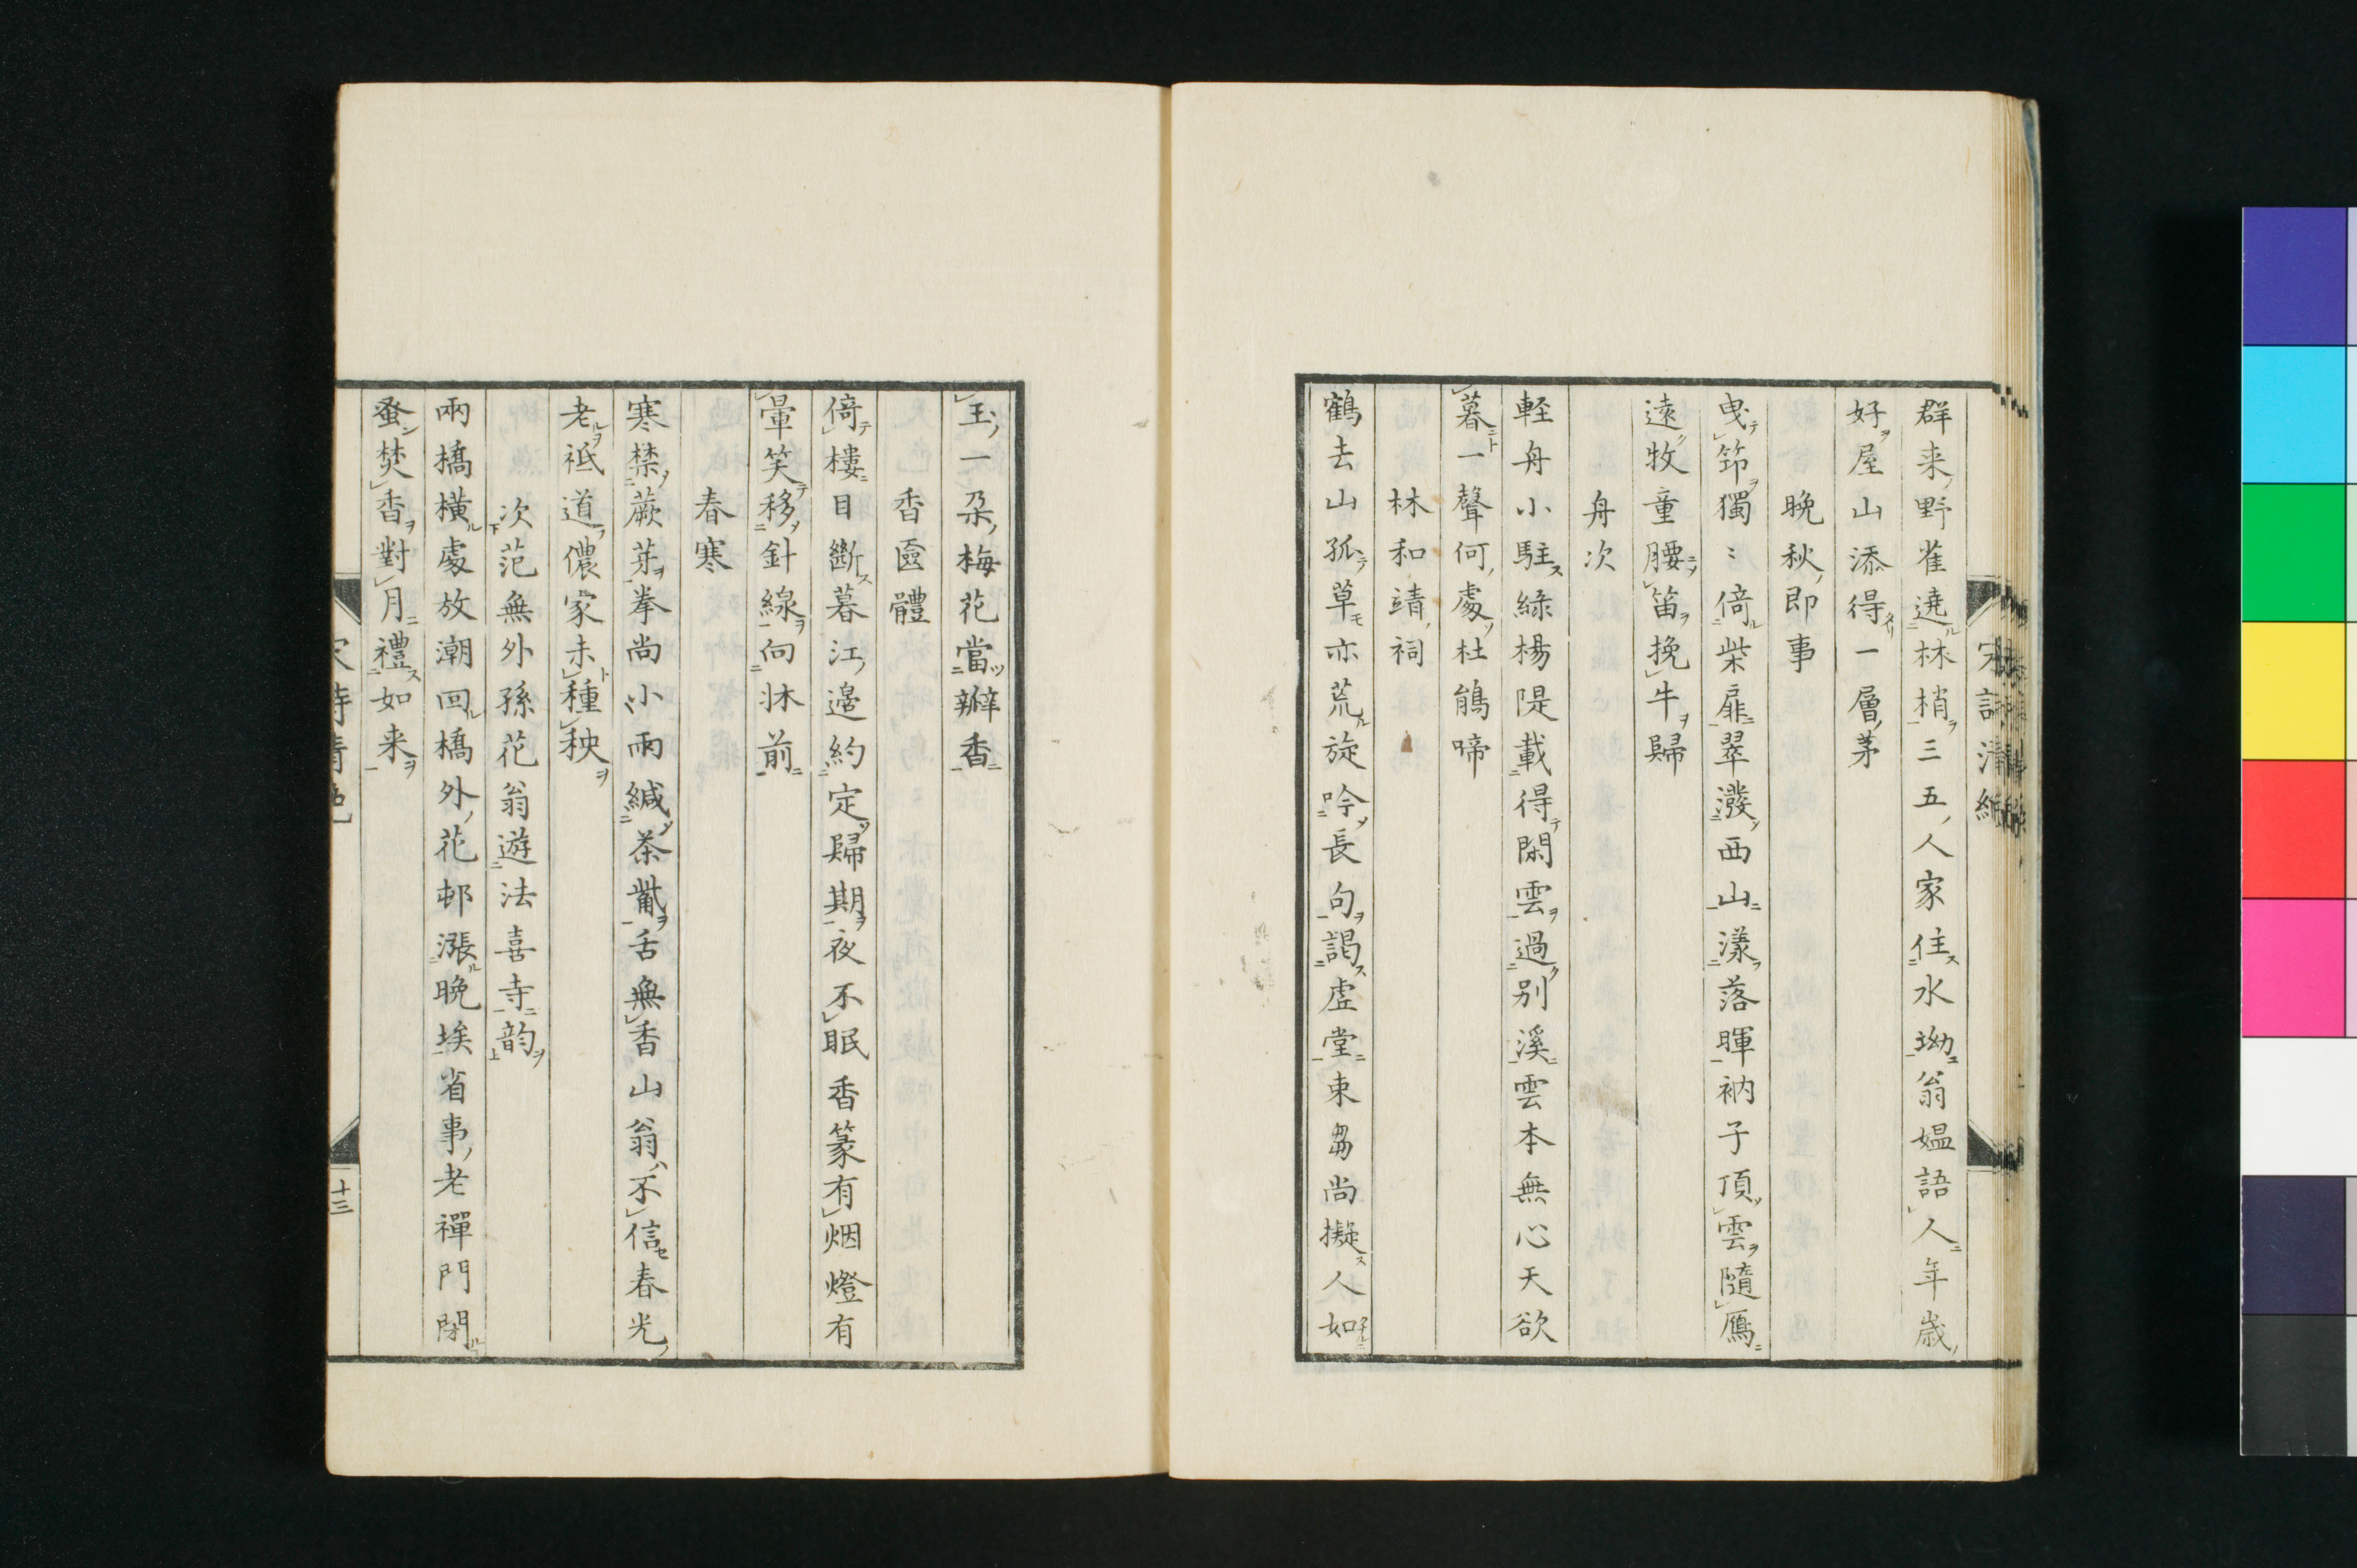 群来野雀遶林梢三五人家住水坳翁媼語人年歳
好屋山添得一層茅
晩秋即事
曳筇獨〻倚柴扉翠潑西山漾落暉衲子頂雲隨鴈
遠牧童腰笛挽牛歸
舟次
軽舟小駐綠楊隄載得閑雲過别溪雲本無心天欲
暮一聲何處杜鵑啼
林和靖祠
鶴去山孤草亦荒旋吟長句謁虚堂束芻尚擬人如
玉一朶梅花當瓣香
香奩體
倚樓目斷暮江邉約定歸期夜不眠香篆有烟燈有
暈笑移針線向牀前
春寒
寒禁蕨芽拳尚小雨緘茶觜舌無香山翁不信春光
老祗道儂家未種秧
次范無外孫花翁遊法喜寺韵
兩橋橫處放潮回橋外花邨漲晩埃省事老禪門閉
蚤焚香對月禮如来
十三